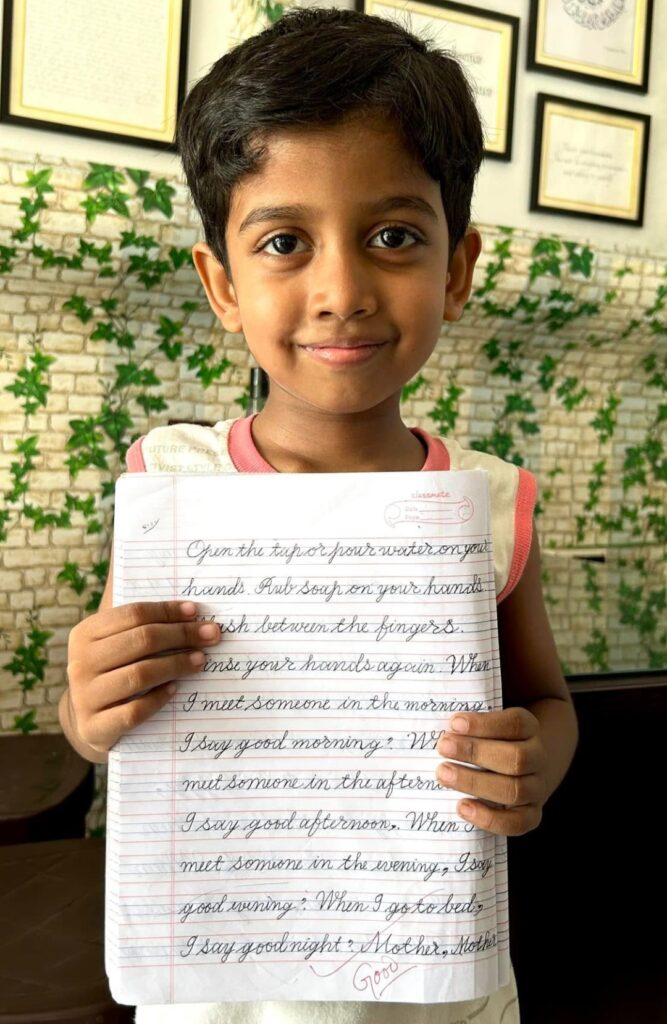 FUTURE PRE
TWIST STYLE
classmate
Date
Page
Open the tap or pour water on your
hands. Rub soap on your hands.
Wash between the fingers.
Rinse your hands again. When
I meet someone in the morning,
I say good morning? Wh
meet someone in the aftern
I say good afternoon,. When I
meet somione in the evening, I say
good evining? When I go to bed,
I say good night? Mother, Mother
Good